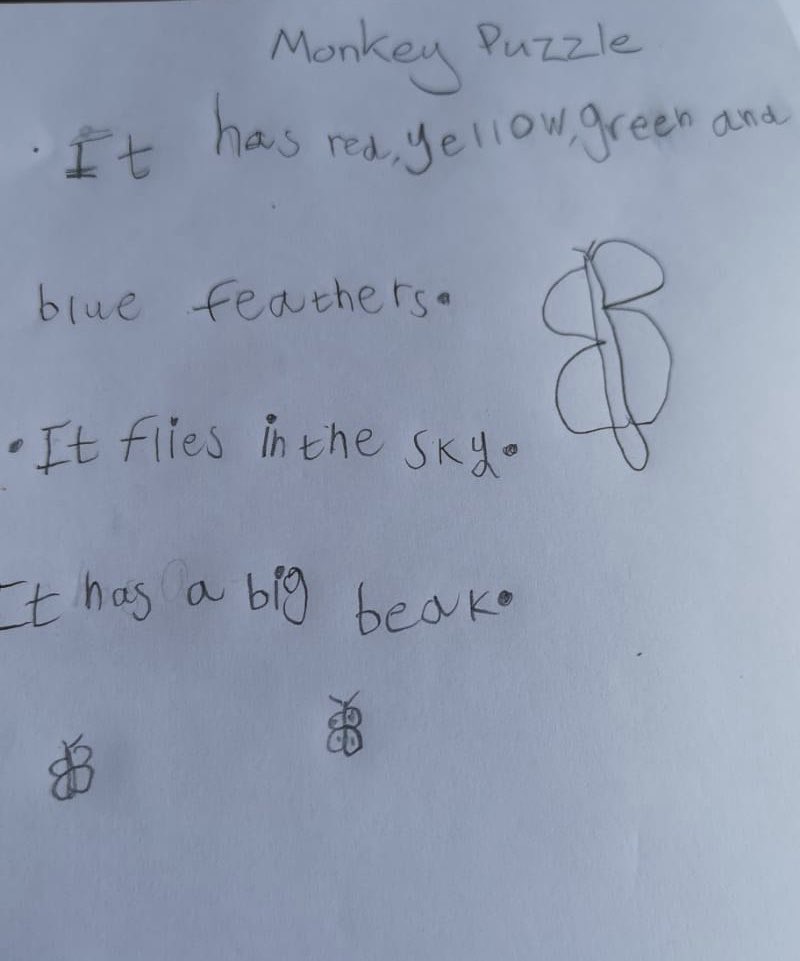 Monkey Puzzle
· It has red, yellow, green and
blue feathers.
· It flies in the sky.
It has a big beak.